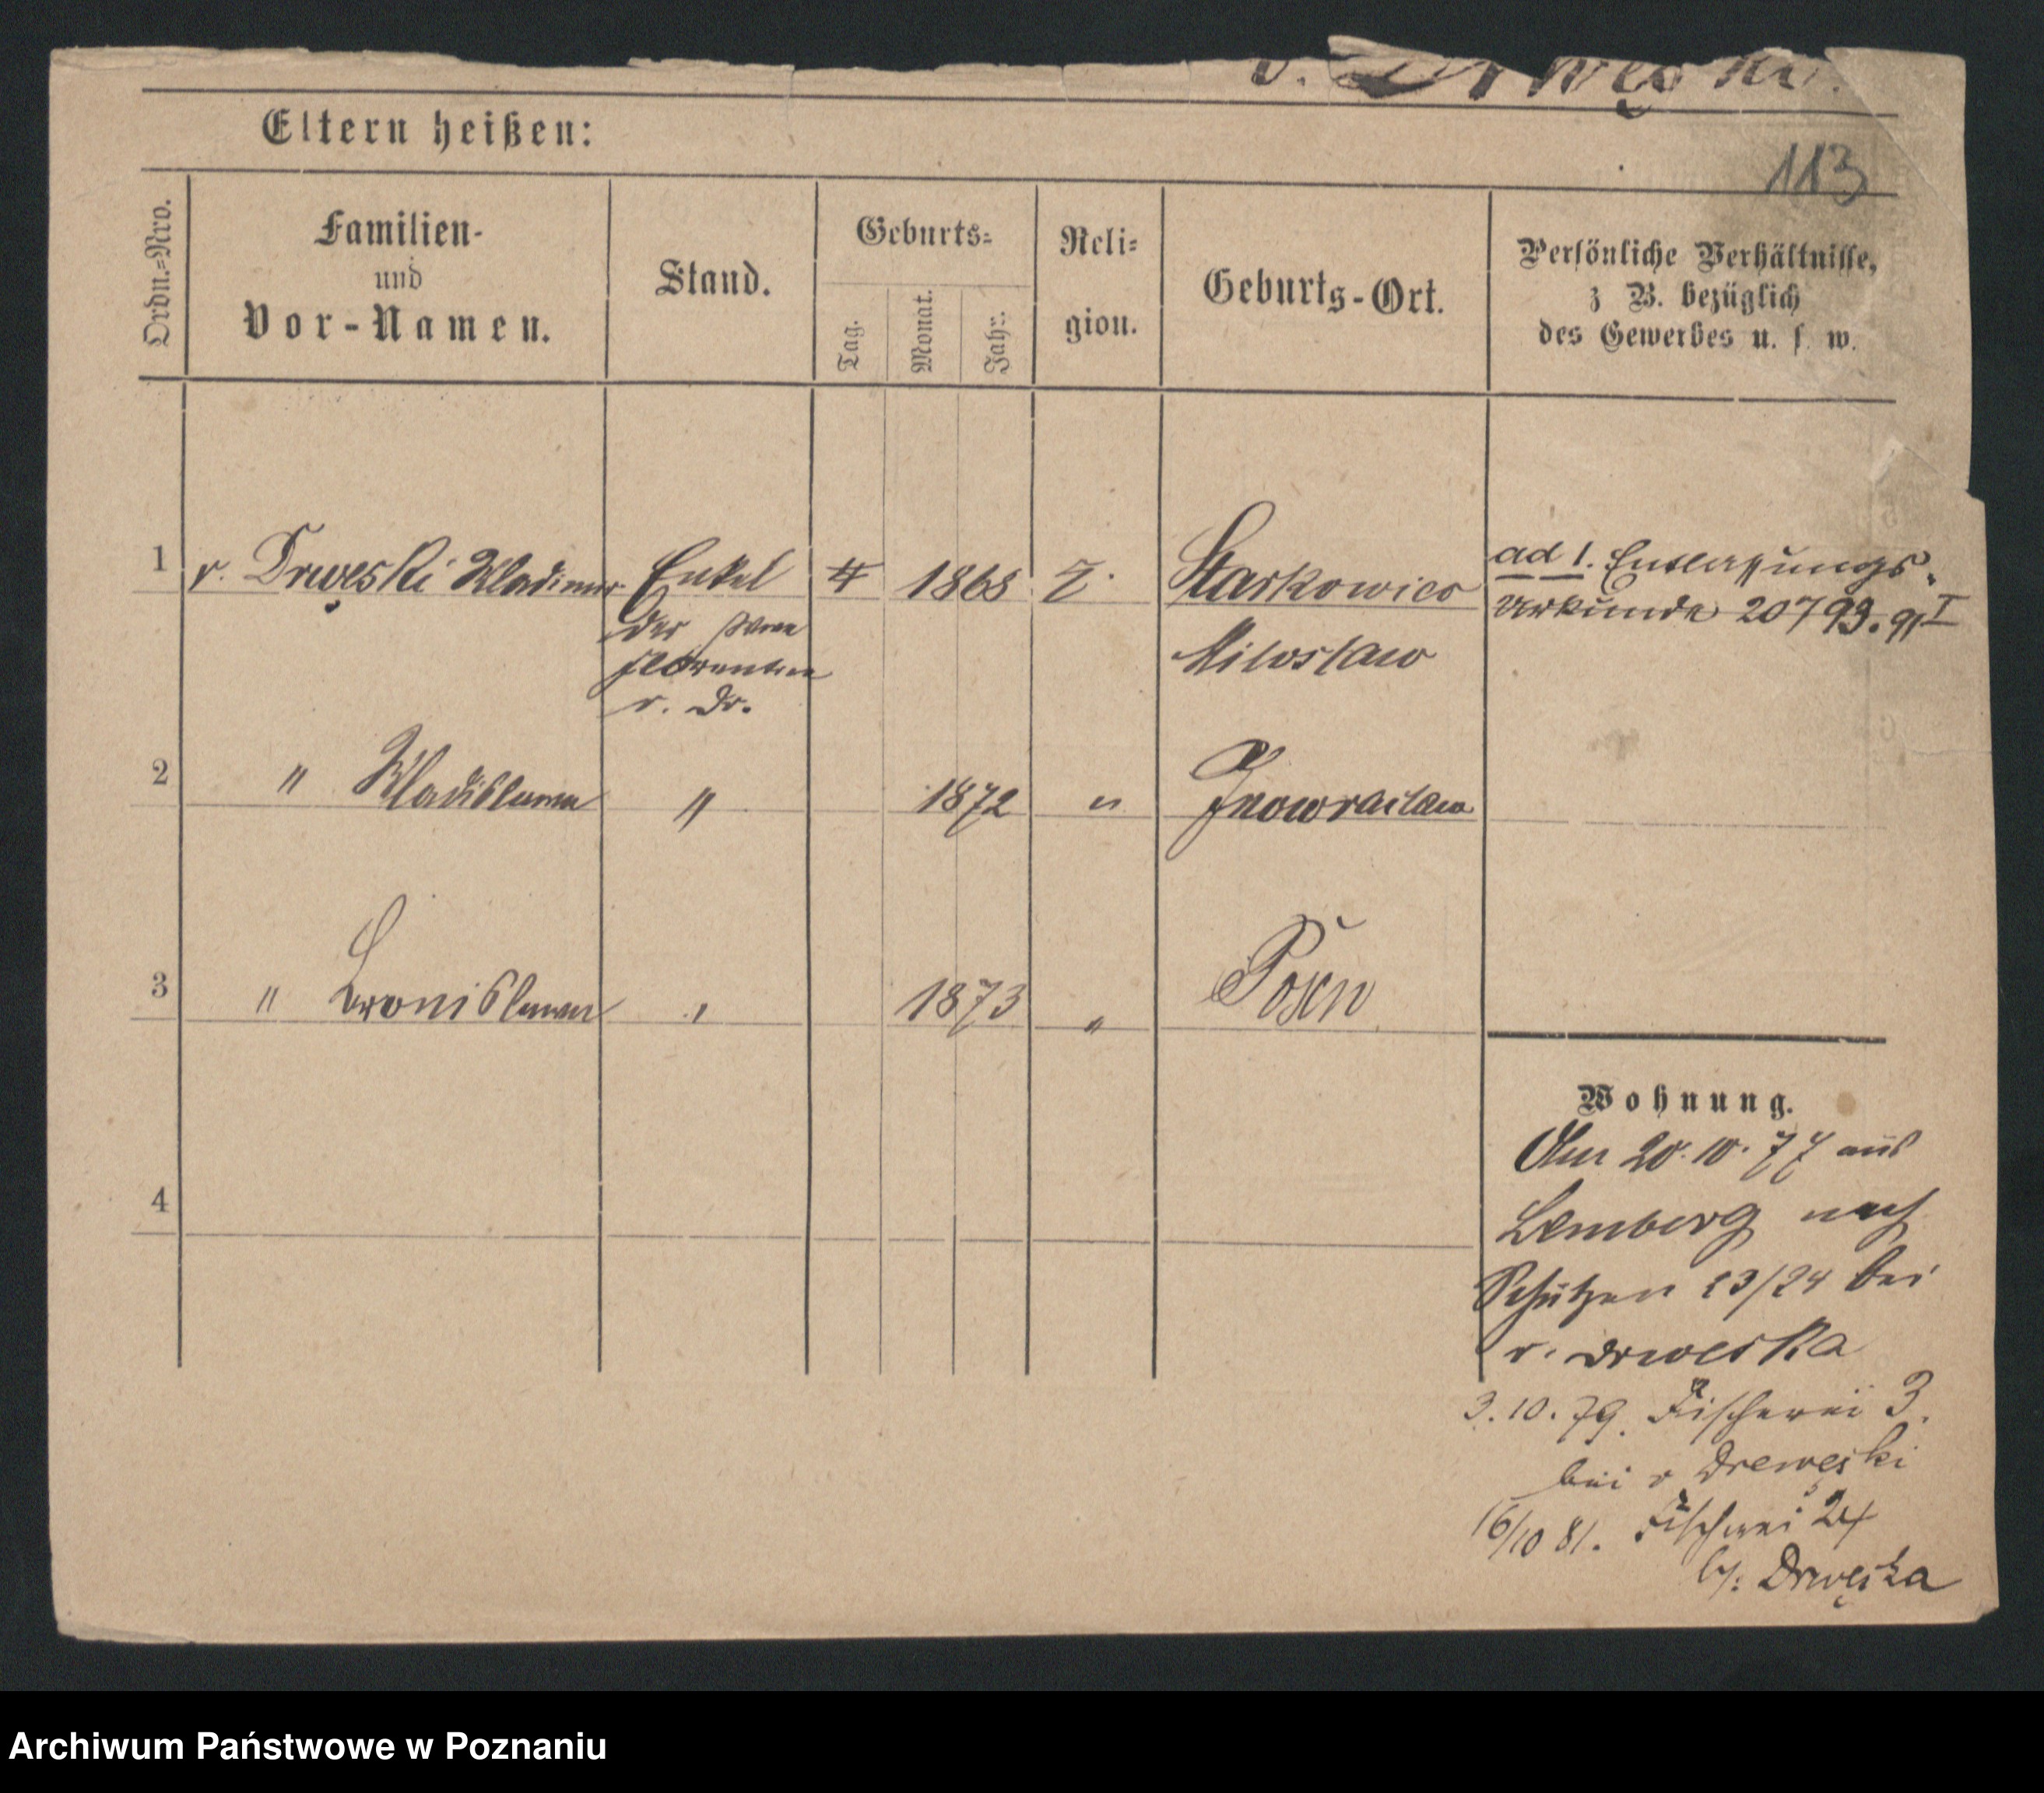 v. Drwęski.
Eltern heißen:
113
Ordn.=Nro.
Familien-
und
Vor-Namen.
Stand.
Geburts=
Tag.
Monat.
Jahr.
Reli=
gion.
Geburts-Ort.
Persönliche Verhältnisse,
z B. bezüglich
des Gewerbes u. s. w.
1 v. Drwęski Wladimir Enkel 4 1868 Starkowiec ad 1. Entlassungs-
der Florentine Miloslaw urkunde 20793.91 I
v. Dr.
2 " Wladislawa " 1872 " Inowraclaw
3 " Bronislawa " 1873 " Posen
4
Wohnung.
Am 20.10.77 aus
Lemberg nach
Schützen 23/24 bei
v. Drweska
3.10.79. Fischerei 3.
bei v Drewęski
16/10 81. Fischerei 24
b/: Drwęska
Archiwum Państwowe w Poznaniu